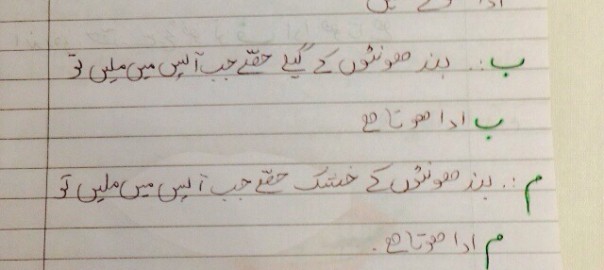 ب:. بند ھونٹوں کے گیلے حصّے جب آپس میں ملیں تو
ب ادا ھوتا ھے
م:. بند ھونٹوں کے خشک حصّے جب آپس میں ملیں تو
م ادا ھوتا ھے.